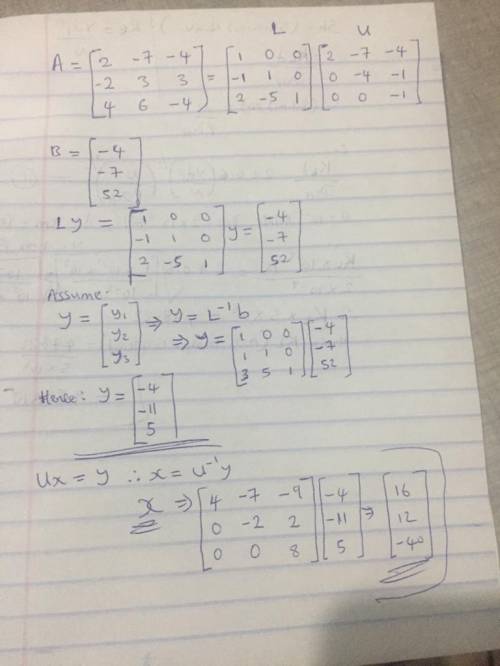 L U
A = [2 -7 -4; -2 3 3; 4 6 -4] = [1 0 0; -1 1 0; 2 -5 1] [2 -7 -4; 0 -4 -1; 0 0 -1]
B = [-4; -7; 52]
Ly = [1 0 0; -1 1 0; 2 -5 1] y = [-4; -7; 52]
Assume:
y = [y1; y2; y3] ⇒ y = L⁻¹b
⇒ y = [1 0 0; 1 1 0; 3 5 1] [-4; -7; 52]
Hence: y = [-4; -11; 5]
Ux = y ∴ x = u⁻¹y
x ⇒ [4 -7 -9; 0 -2 2; 0 0 8] [-4; -11; 5] ⇒ [16; 12; -40]